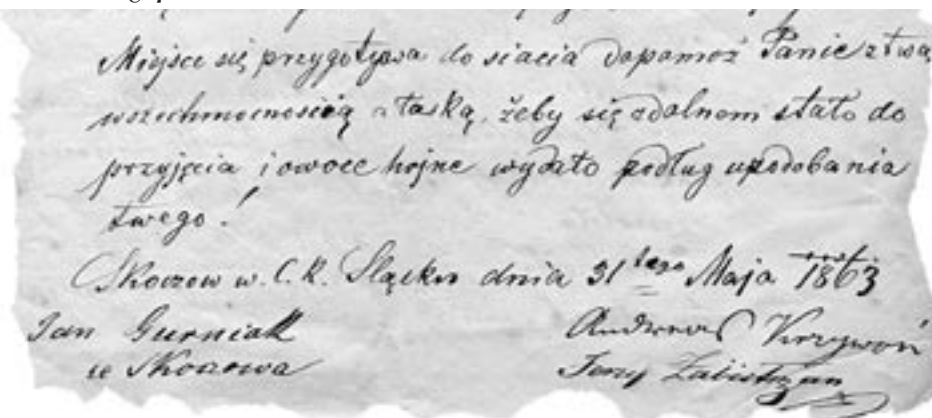 Miejsce się przygotywa do siacia dopomoż Panie z twą
wszechmocnością a łaską, żeby się zdolnem stało do
przyjęcia i owoce hojne wydało podług upodobania
twego!
Skoczow w. C. K. Sląsku dnia 31 tego Maja 1863
Jan Gurniak
Andreas Krzywoń
w Skoczowa
Jerzy